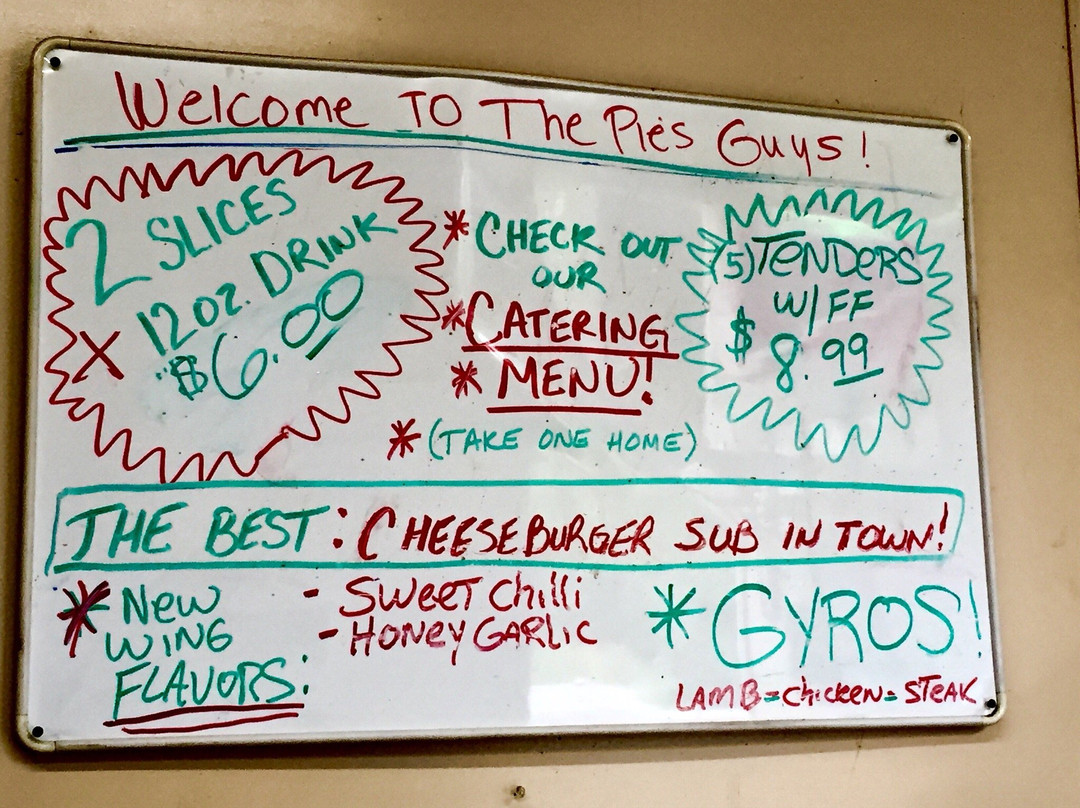 Welcome To The Pies Guys!
2 SLICES
12oz. DRINK
X $6.00
* CHECK OUT
OUR
* CATERING
* MENU!
* (TAKE ONE HOME)
(5) TENDERS
W/FF
$8.99
THE BEST: CHEESEBURGER SUB IN TOWN!
* New
WING
FLAVORS:
- SWEET Chilli
- HONEY GARLIC
* GYROS!
LAMB=chicken=STEAK